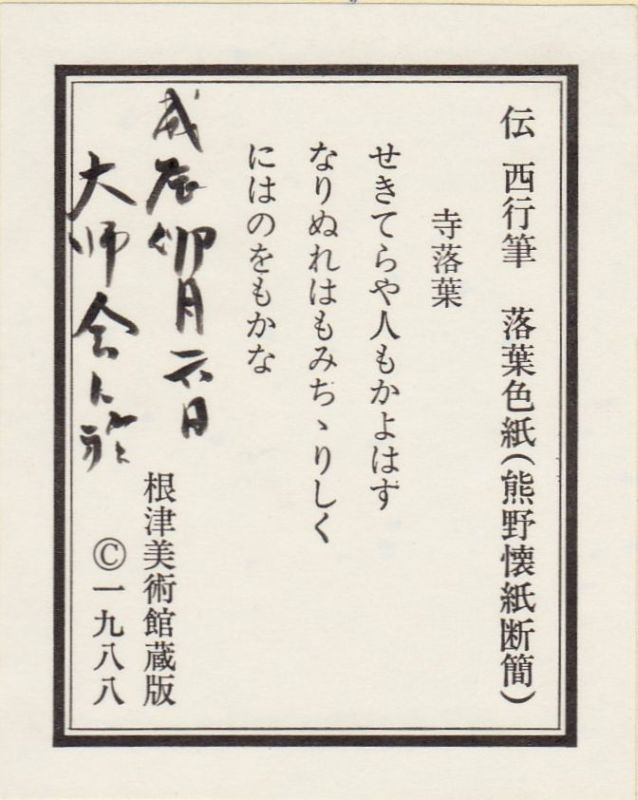 伝 西行筆 落葉色紙(熊野懐紙断簡)
寺落葉
せきてらや人もかよはす
なりぬれはもみちゝりしく
にはのをもかな
戊辰卯月六日
大師会に於
根津美術館蔵版
©一九八八